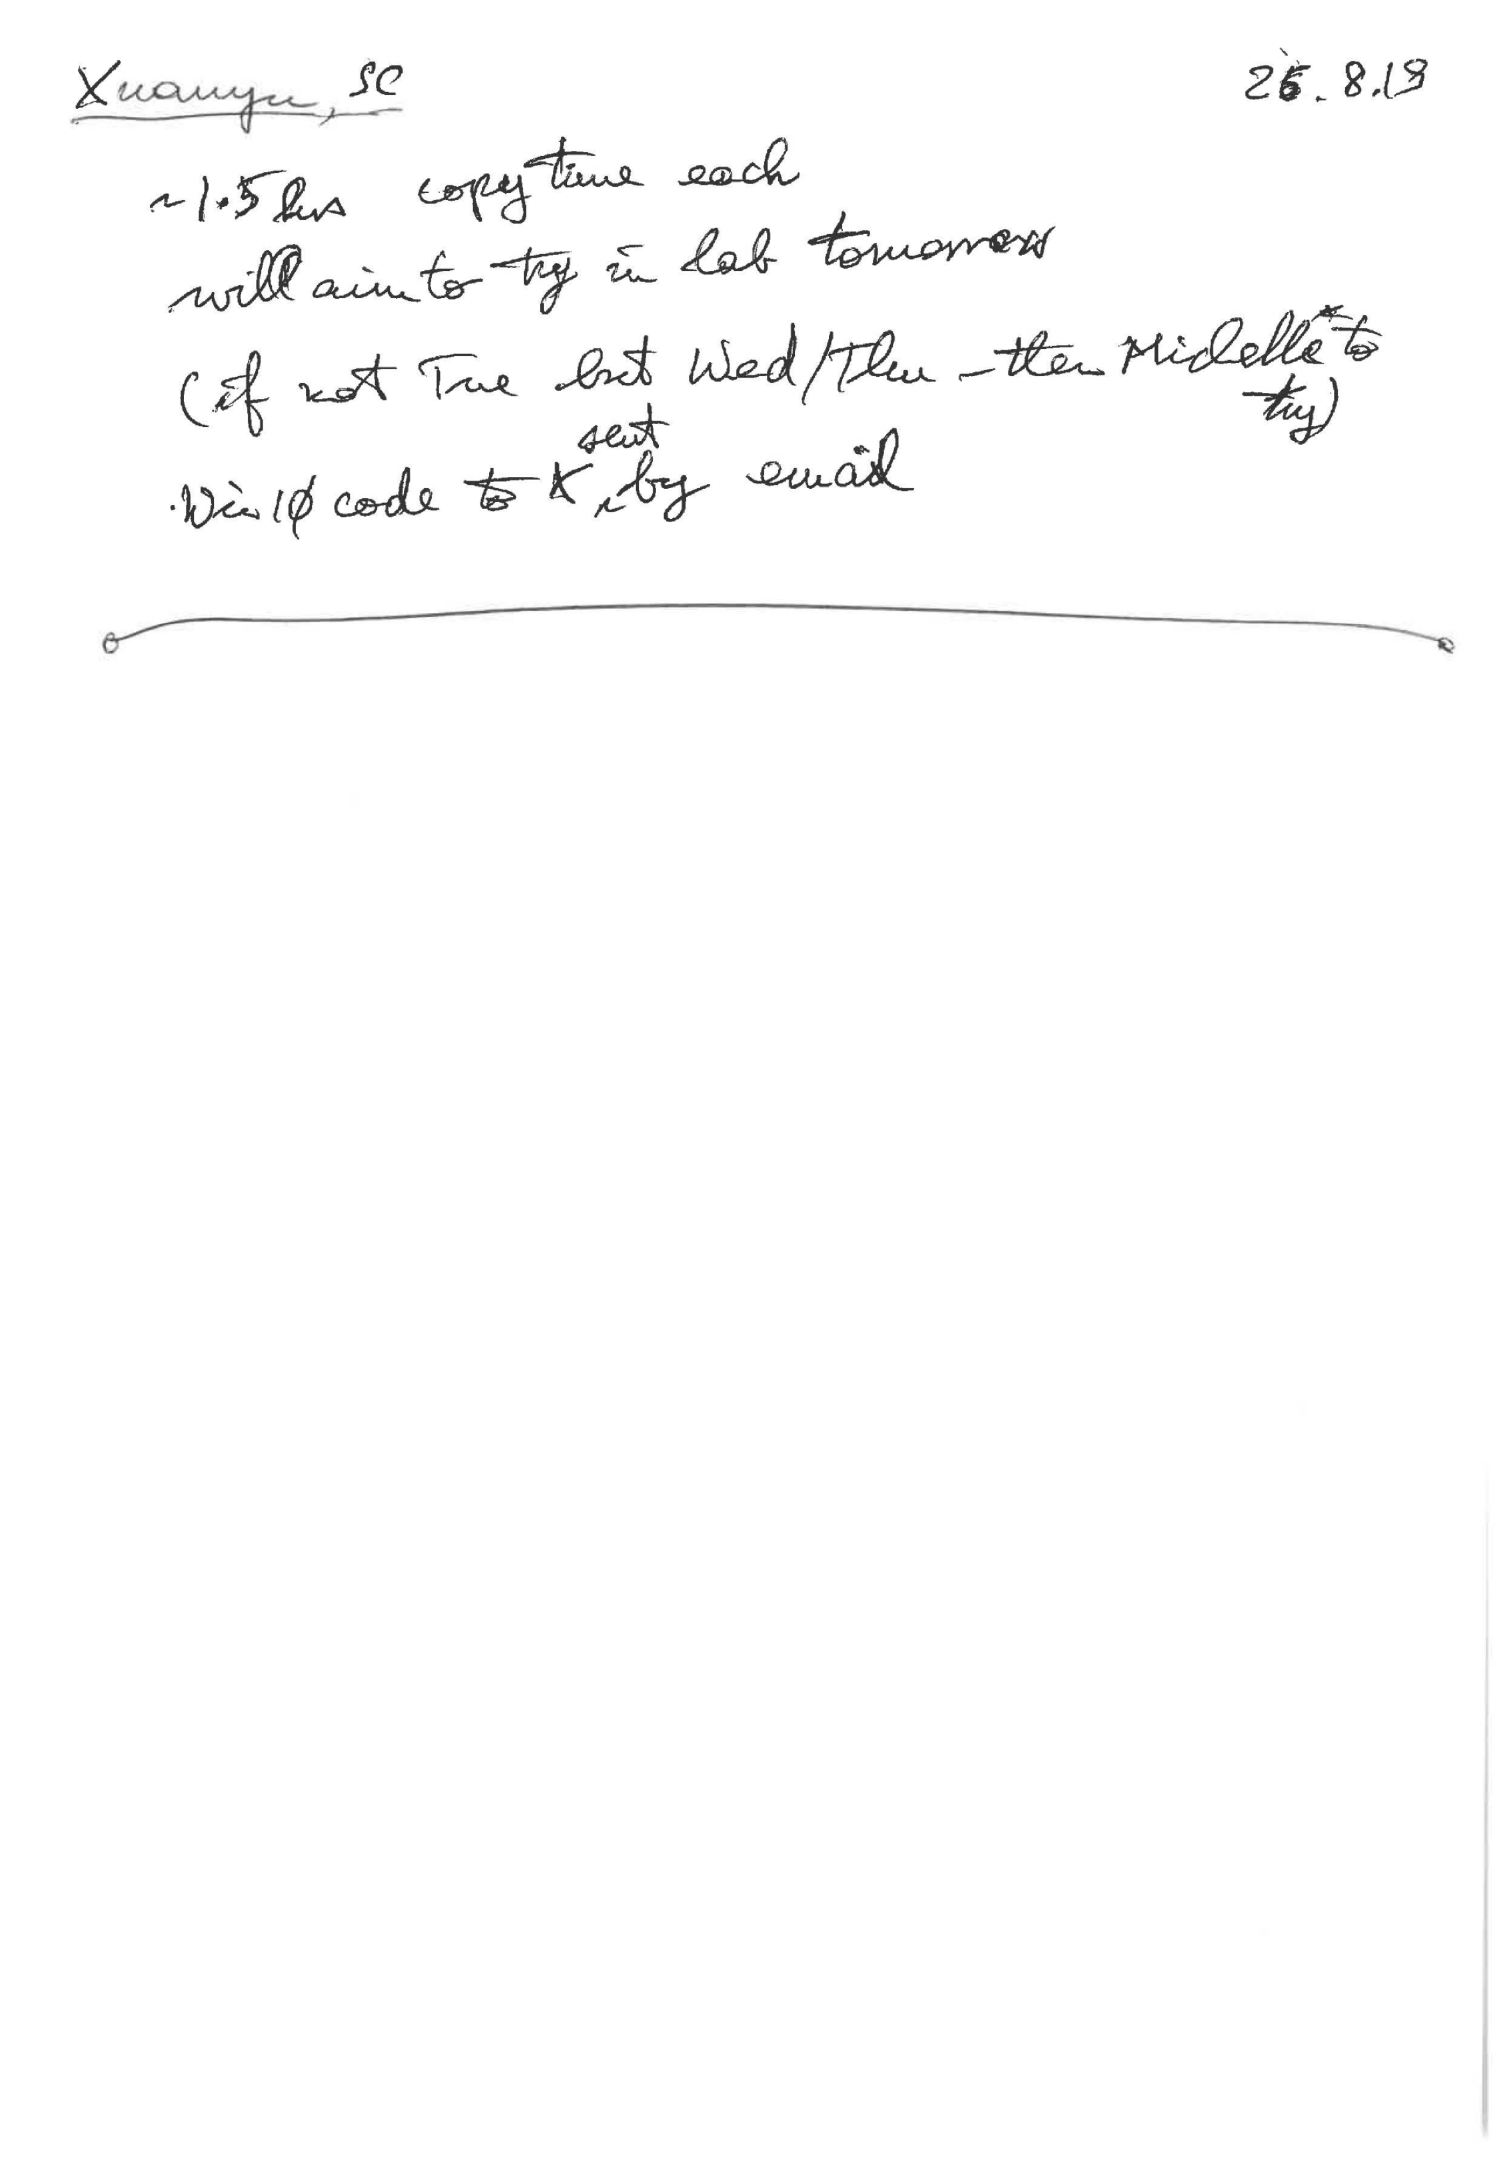 Xuanyu, SC 26.8.19
~1.5 hrs copy time each
will aim to try in lab tomorrow
(if not Tue but Wed/Thu - then Michelle* to
try)
sent
· Win 10 code to X, by email